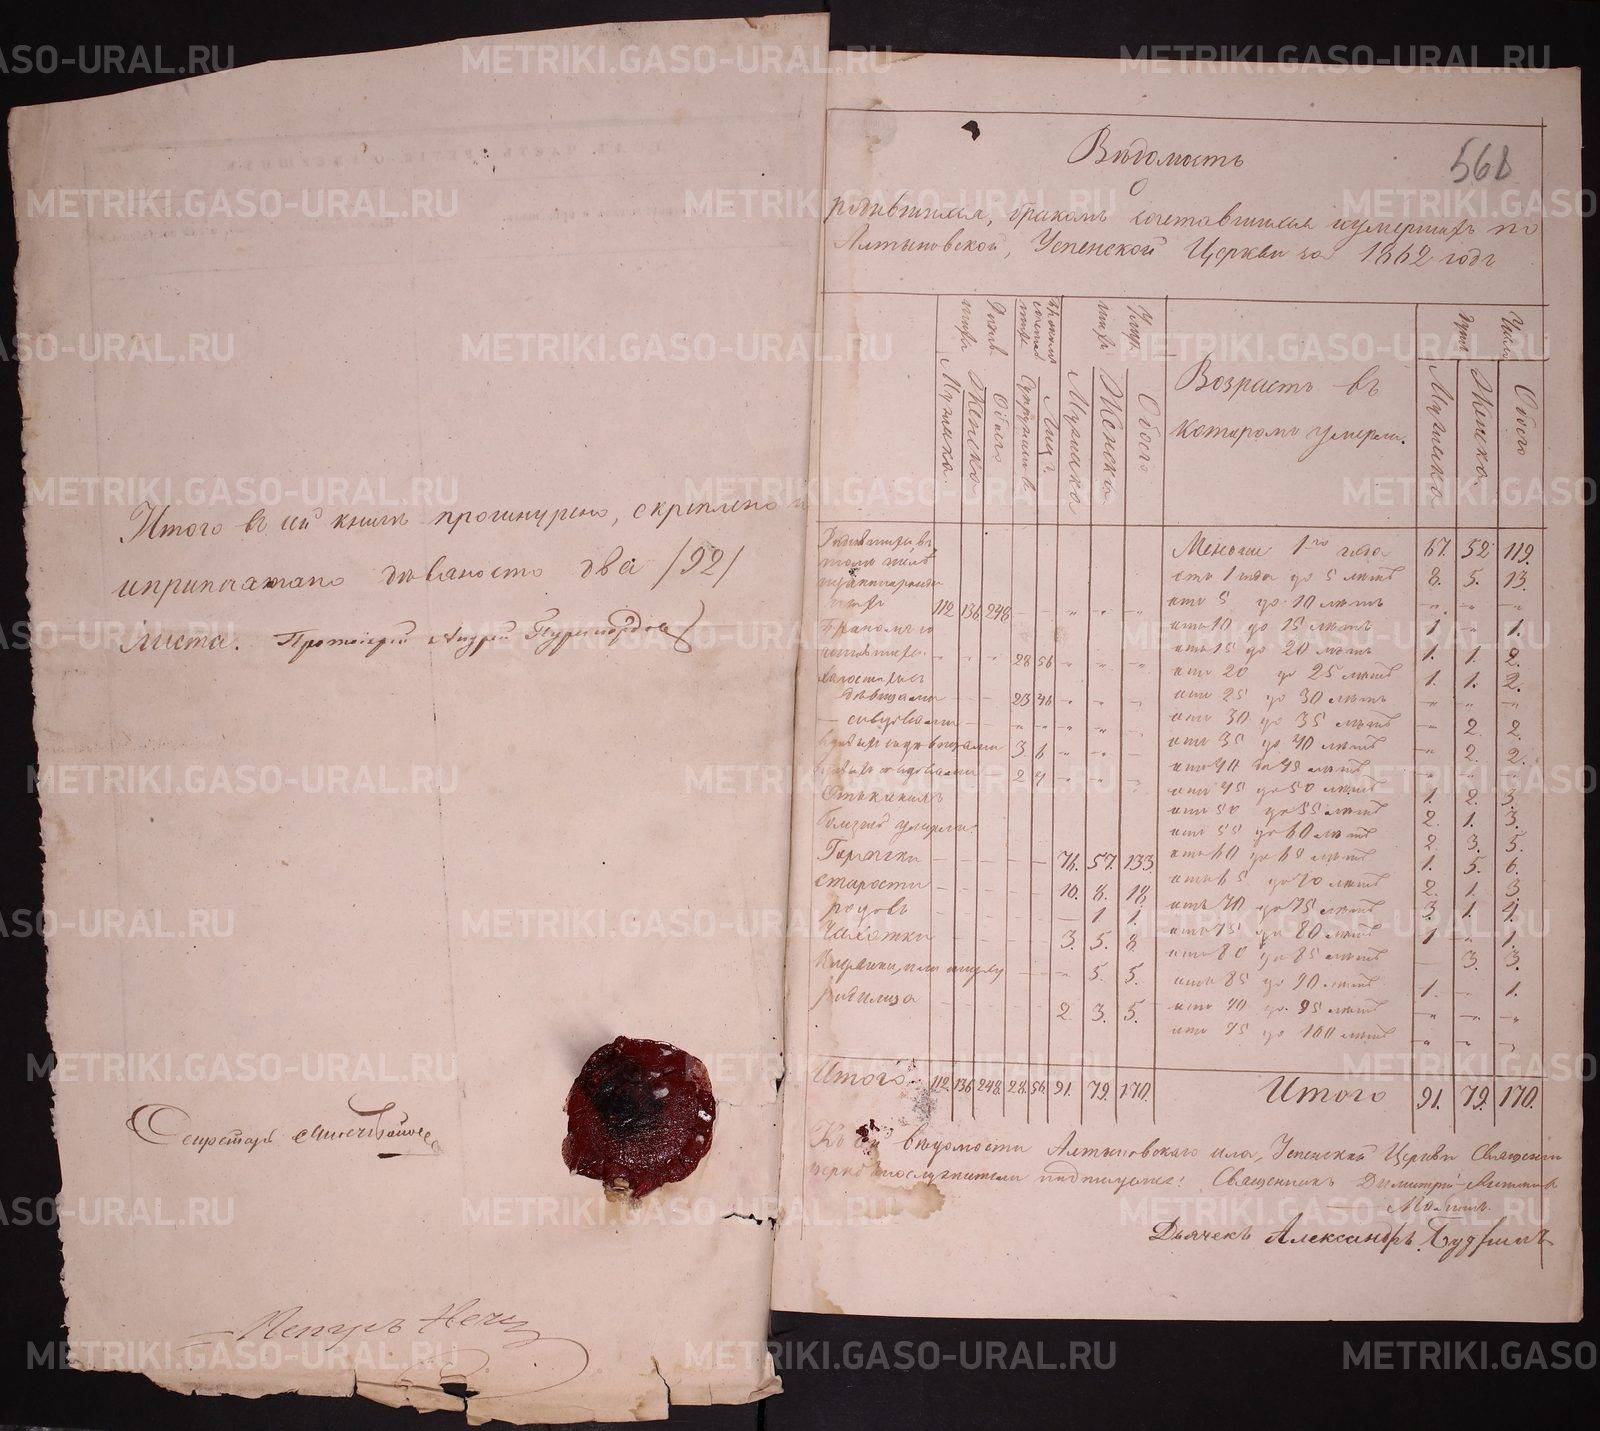 Итого въ сей книгѣ прошнурено, скреплено и
и припечатано девяносто два /92/
листа. Протоіерей Андрей
Секретарь
568
Вѣдомость
о
родившихся, бракомъ сочетавшихся и умершихъ по
Алтыновской, Успенской Церкви за 1862 годъ
Родив. шихъ Мужеска Женска Обоего
бракомъ сочетав шихъ Супружествъ Лицъ
Умер. шихъ Мужеска Женска Обоего
Возрастъ въ которомъ умерли.
Число душъ Мужеска Женска Обоего
Родившихся, въ
томъ числѣ
112 136 248
Бракомъ со
четавшихся 28 56
холостыхъ съ
дѣвицами 23 46
со вдовами
вдовыхъ съ дѣвицами 3 6
вдовыхъ со вдовами 2 4
Отъ какихъ
болѣзней умерли:
Горячки 76. 57. 133.
Старости 10. 8. 18.
родовъ 1 1.
Чахотки 3. 5. 8.
5. 5.
родимца 2 3. 5.
Итого 112. 136. 248. 28. 56. 91. 79. 170.
Менѣе 1го года 67. 52 119.
отъ 1 года до 5 лѣтъ 8. 5. 13.
отъ 5 до 10 лѣтъ „ „ „
отъ 10 до 15 лѣтъ 1 „ 1.
отъ 15 до 20 лѣтъ 1. 1. 2.
отъ 20 до 25 лѣтъ 1. 1. 2.
отъ 25 до 30 лѣтъ „ „ „
отъ 30 до 35 лѣтъ „ 2. 2.
отъ 35 до 40 лѣтъ „ 2. 2.
отъ 40 до 45 лѣтъ „ „ „
отъ 45 до 50 лѣтъ 1. 2. 3.
отъ 50 до 55 лѣтъ 2. 1. 3.
отъ 55 до 60 лѣтъ 2. 3. 5.
отъ 60 до 65 лѣтъ 1. 5. 6.
отъ 65 до 70 лѣтъ 2. 1. 3.
отъ 70 до 75 лѣтъ 3. 1. 4.
отъ 75 до 80 лѣтъ 1 „ 1.
отъ 80 до 85 лѣтъ 3. 3.
отъ 85 до 90 лѣтъ 1. 1.
отъ 90 до 95 лѣтъ „ „ „
отъ 95 до 100 лѣтъ „ „ „
Итого 91. 79. 170.
Къ сей вѣдомости Алтыновскаго села, Успенской Церкви Священно
церковнослужители подписуемся: Священникъ Димитрій
Дьячекъ Александръ
METRIKI.GASO-URAL.RU